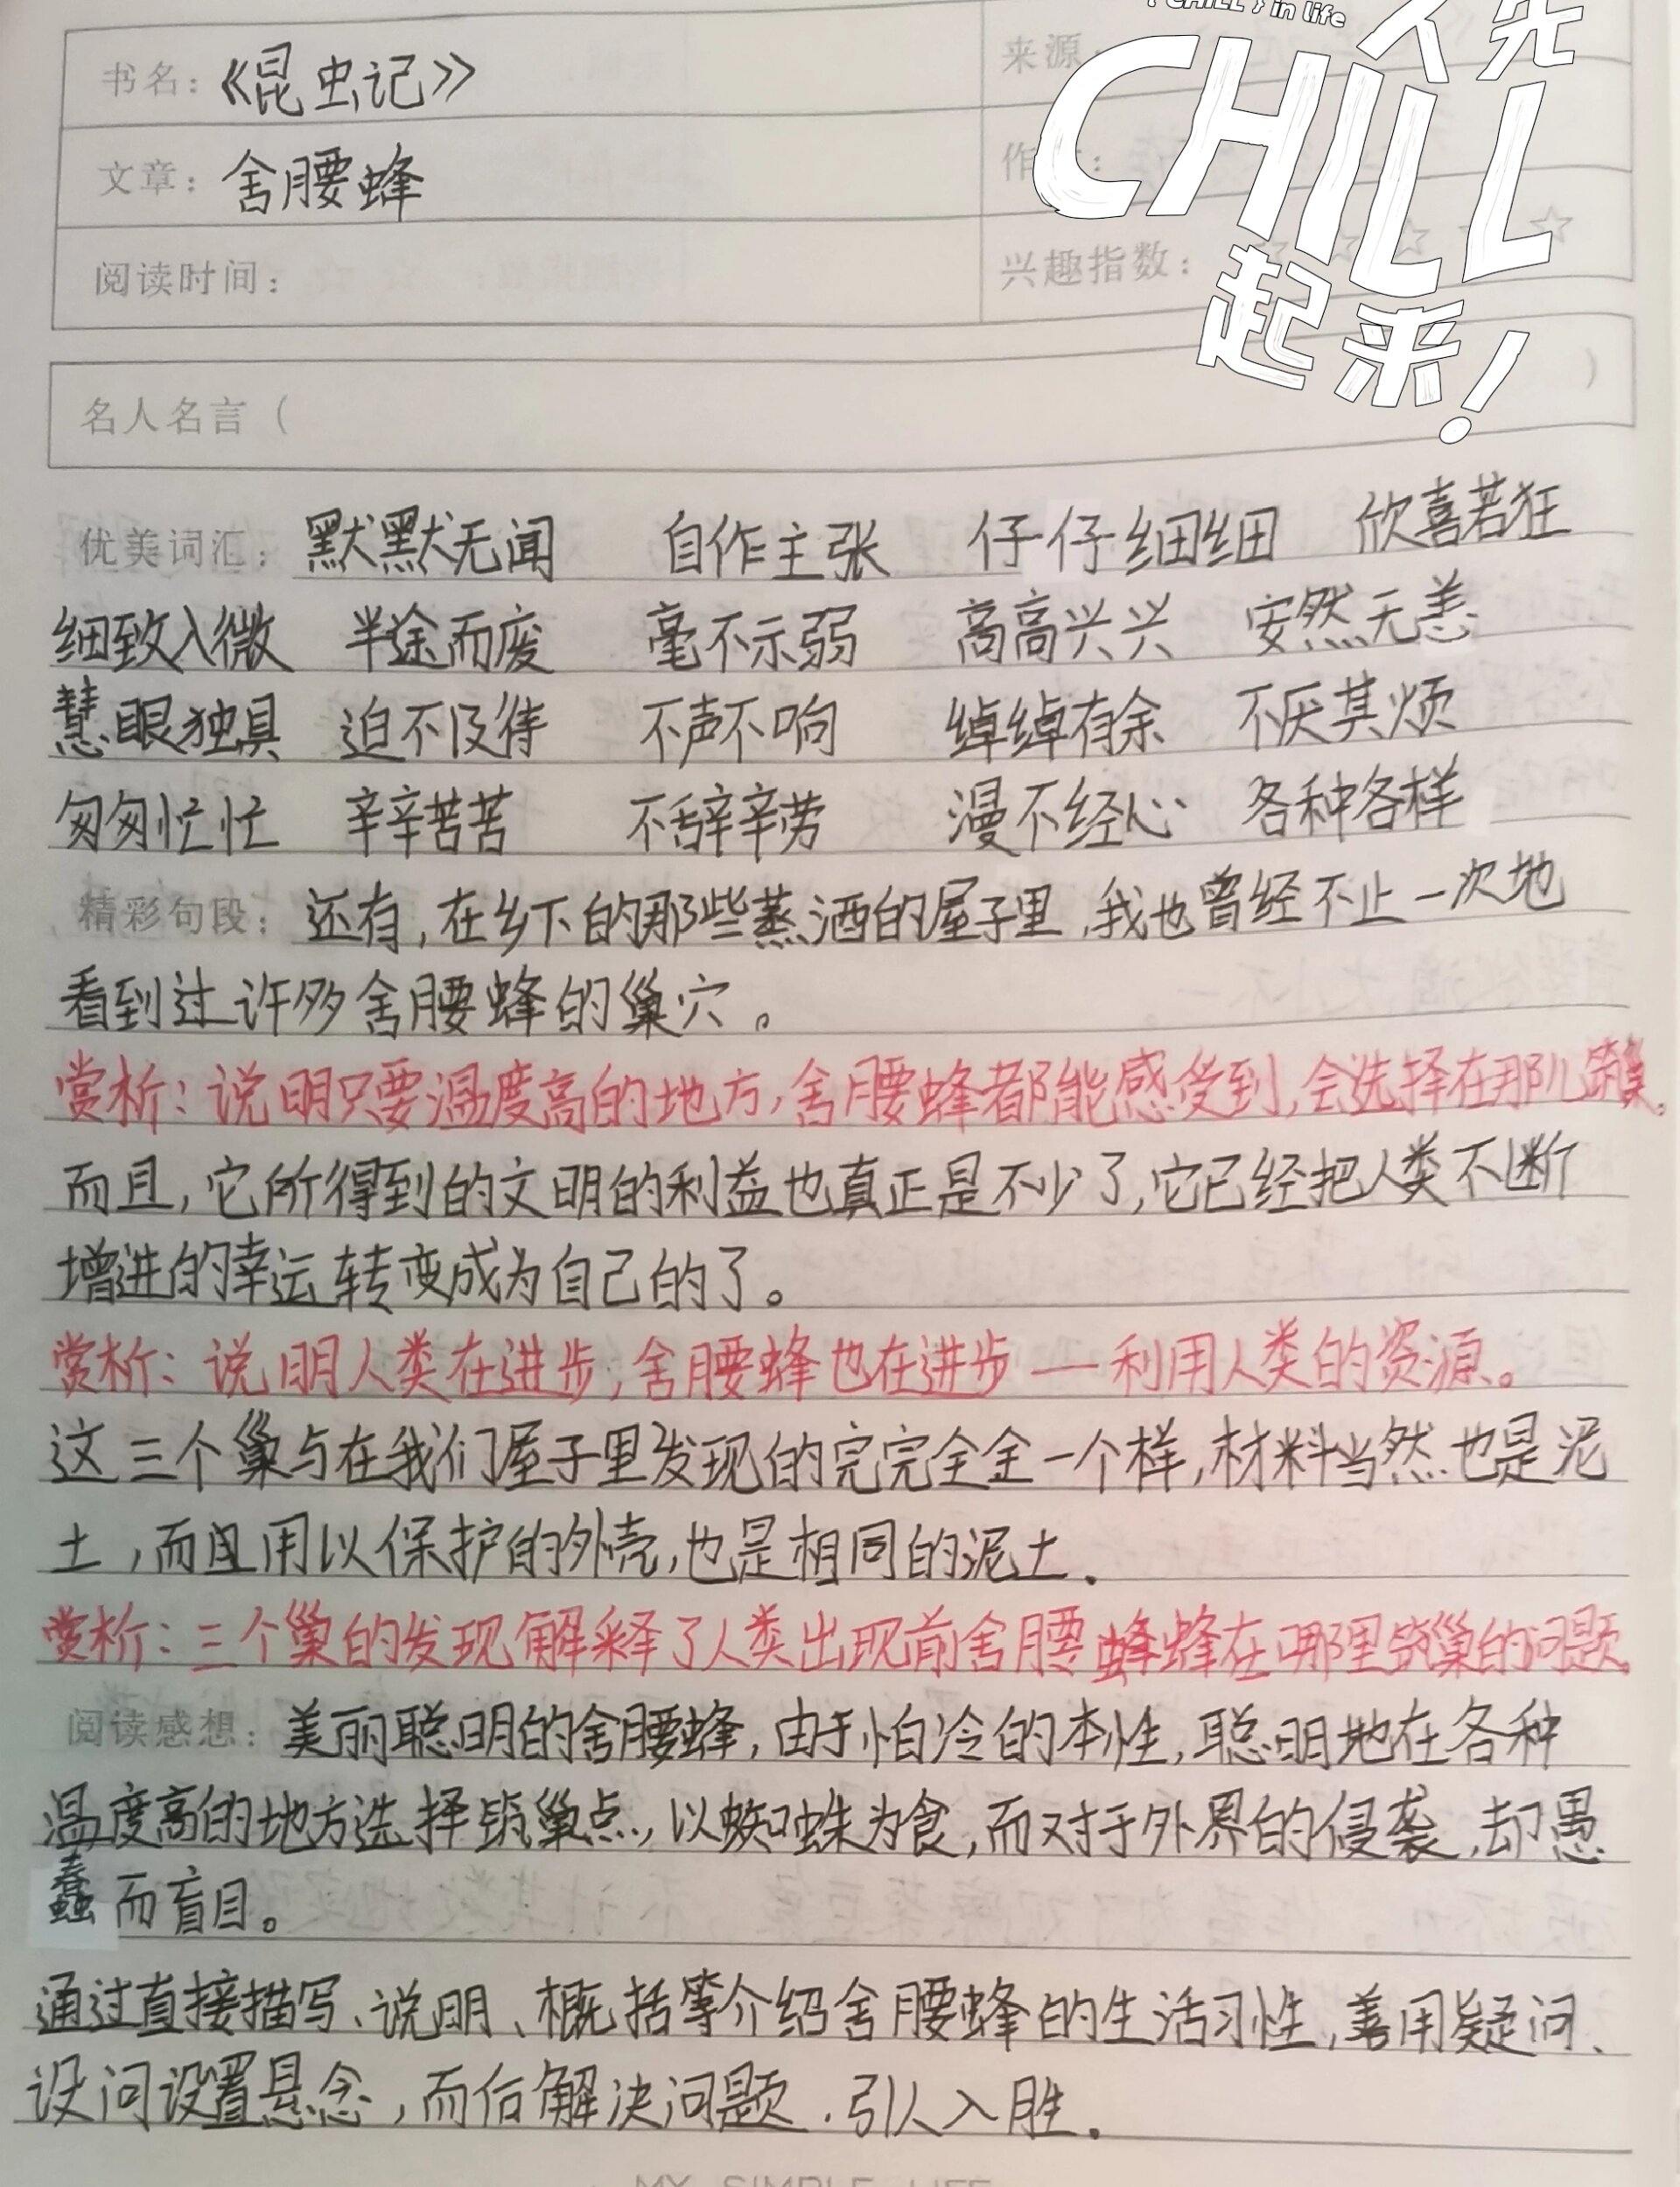 {CHILL} in life
人先
CHILL
起来！
书名：《昆虫记》
来源：
文章：舍腰蜂
作：
阅读时间：
兴趣指数：☆☆☆☆☆
名人名言（ ）
优美词汇：默默无闻 自作主张 仔仔细细 欣喜若狂
细致入微 半途而废 毫不示弱 高高兴兴 安然无恙
慧眼独具 迫不及待 不声不响 绰绰有余 不厌其烦
匆匆忙忙 辛辛苦苦 不辞辛劳 漫不经心 各种各样
精彩句段：还有，在乡下的那些蒸酒的屋子里，我也曾经不止一次地
看到过许多舍腰蜂的巢穴。
赏析：说明只要温度高的地方，舍腰蜂都能感受到，会选择在那儿筑巢。
而且，它所得到的文明的利益也真正是不少了，它已经把人类不断
增进的幸运转变成为自己的了。
赏析：说明人类在进步，舍腰蜂也在进步—利用人类的资源。
这三个巢与在我们屋子里发现的完完全全一个样，材料当然也是泥
土，而且用以保护的外壳，也是相同的泥土．
赏析：三个巢的发现解释了人类出现前舍腰蜂蜂在哪里筑巢的问题。
阅读感想：美丽聪明的舍腰蜂，由于怕冷的本性，聪明地在各种
温度高的地方选择筑巢点，以蜘蛛为食，而对于外界的侵袭，却愚
蠢而盲目。
通过直接描写、说明、概括等介绍舍腰蜂的生活习性，善用疑问、
设问设置悬念，而后解决问题．引人入胜．
MY SIMPLE LIFE